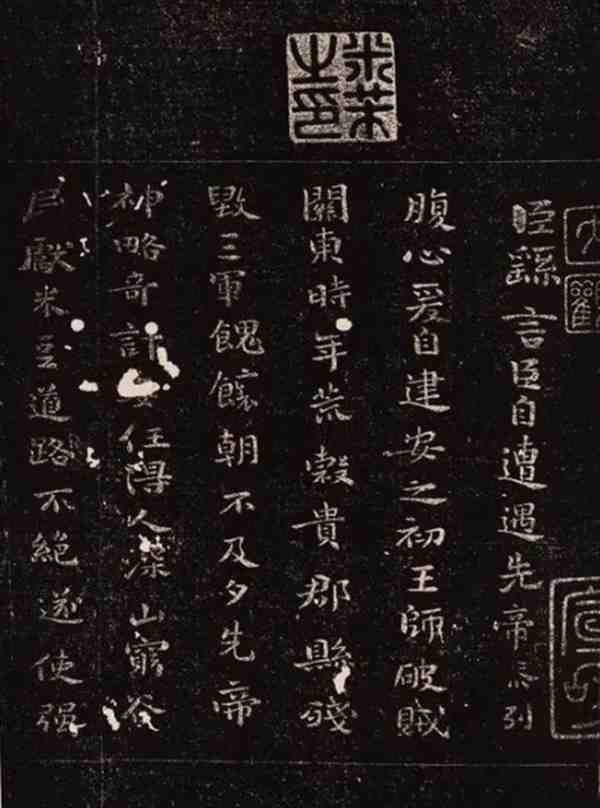 臣繇言臣自遭遇先帝忝列
腹心爰自建安之初王師破賊
關東時年荒穀貴郡縣殘
毀三軍餽饟朝不及夕先帝
神略奇計委任得人深山窮谷
民獻米豆道路不絕遂使强
米芾之印
大觀